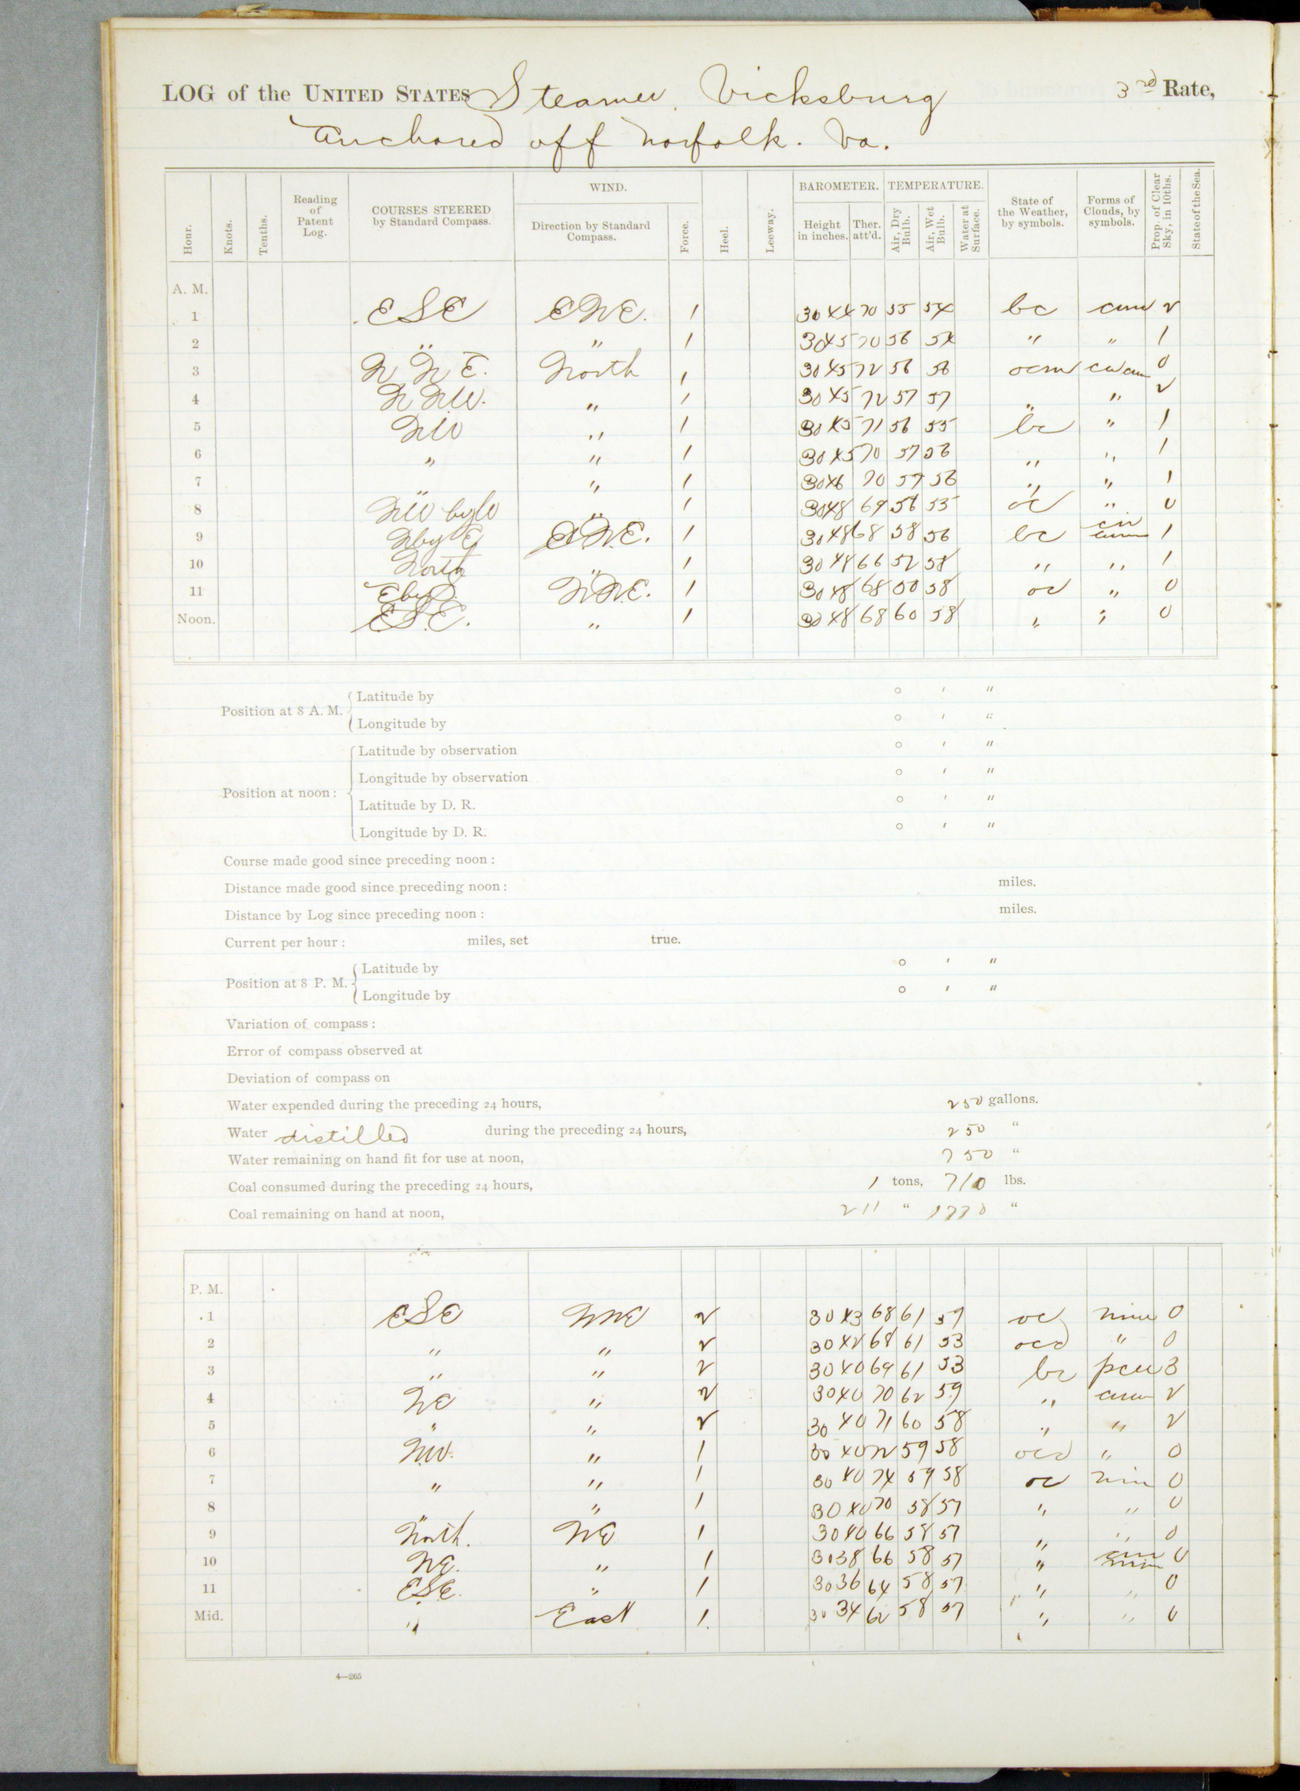 LOG of the UNITED STATES Steamer Vicksburg 3rd Rate,
Anchored off Norfolk. Va.
Hour. Knots. Tenths. Reading of Patent Log. COURSES STEERED by Standard Compass. WIND. Direction by Standard Compass. Force. Heel. Leeway. BAROMETER. Height in inches. Ther. att'd. TEMPERATURE. Air, Dry Bulb. Air, Wet Bulb. Water at Surface. State of the Weather, by symbols. Forms of Clouds, by symbols. Prop. of Clear Sky, in 10ths. State of the Sea.
A. M.
1 ESE ENE. 1 30 44 70 55 54 bc cum 2
2 " " 1 30 45 70 56 54 " " 1
3 N N E. North 1 30 45 72 56 56 ocm cu cum 0
4 N NW. " 1 30 45 72 57 57 " " 2
5 NW " 1 30 45 71 56 55 bc " 1
6 " " 1 30 45 70 57 56 " " 1
7 " " 1 30 46 70 57 56 " " 1
8 NW by W " 1 30 48 69 56 55 oc " 0
9 N by E ENE. 1 30 48 68 58 56 bc cir cum 1
10 North " 1 30 48 66 58 " " 1
11 E by S NNE. 1 30 48 68 58 oc " 0
Noon. ESE. " 1 30 48 68 60 58 " " 0
Position at 8 A. M. Latitude by ° ' "
Longitude by ° ' "
Position at noon: Latitude by observation ° ' "
Longitude by observation ° ' "
Latitude by D. R. ° ' "
Longitude by D. R. ° ' "
Course made good since preceding noon:
Distance made good since preceding noon: miles.
Distance by Log since preceding noon: miles.
Current per hour: miles, set true.
Position at 8 P. M. Latitude by ° ' "
Longitude by ° ' "
Variation of compass:
Error of compass observed at
Deviation of compass on
Water expended during the preceding 24 hours, 250 gallons.
Water distilled during the preceding 24 hours, 250 "
Water remaining on hand fit for use at noon, 750 "
Coal consumed during the preceding 24 hours, 1 tons, 710 lbs.
Coal remaining on hand at noon, 211 " 1770 "
P. M.
1 ESE NNE 2 30 43 68 61 57 oc nim 0
2 " " 2 30 42 68 61 53 ocd " 0
3 " " 2 30 40 69 61 53 bc 3
4 NE " 2 30 40 70 62 59 " cum 2
5 " " 2 30 40 71 60 58 " " 2
6 NW. " 1 30 40 72 59 58 ocd " 0
7 " " 1 30 40 74 59 58 oc nim 0
8 " " 1 30 40 70 58 57 " " 0
9 North. NE 1 30 40 66 58 57 " " 0
10 NE. " 1 30 38 66 58 57 " nim 0
11 ESE. " 1 30 36 64 58 57 " " 0
Mid. " East 1 30 34 62 58 57 " " 0
4—265